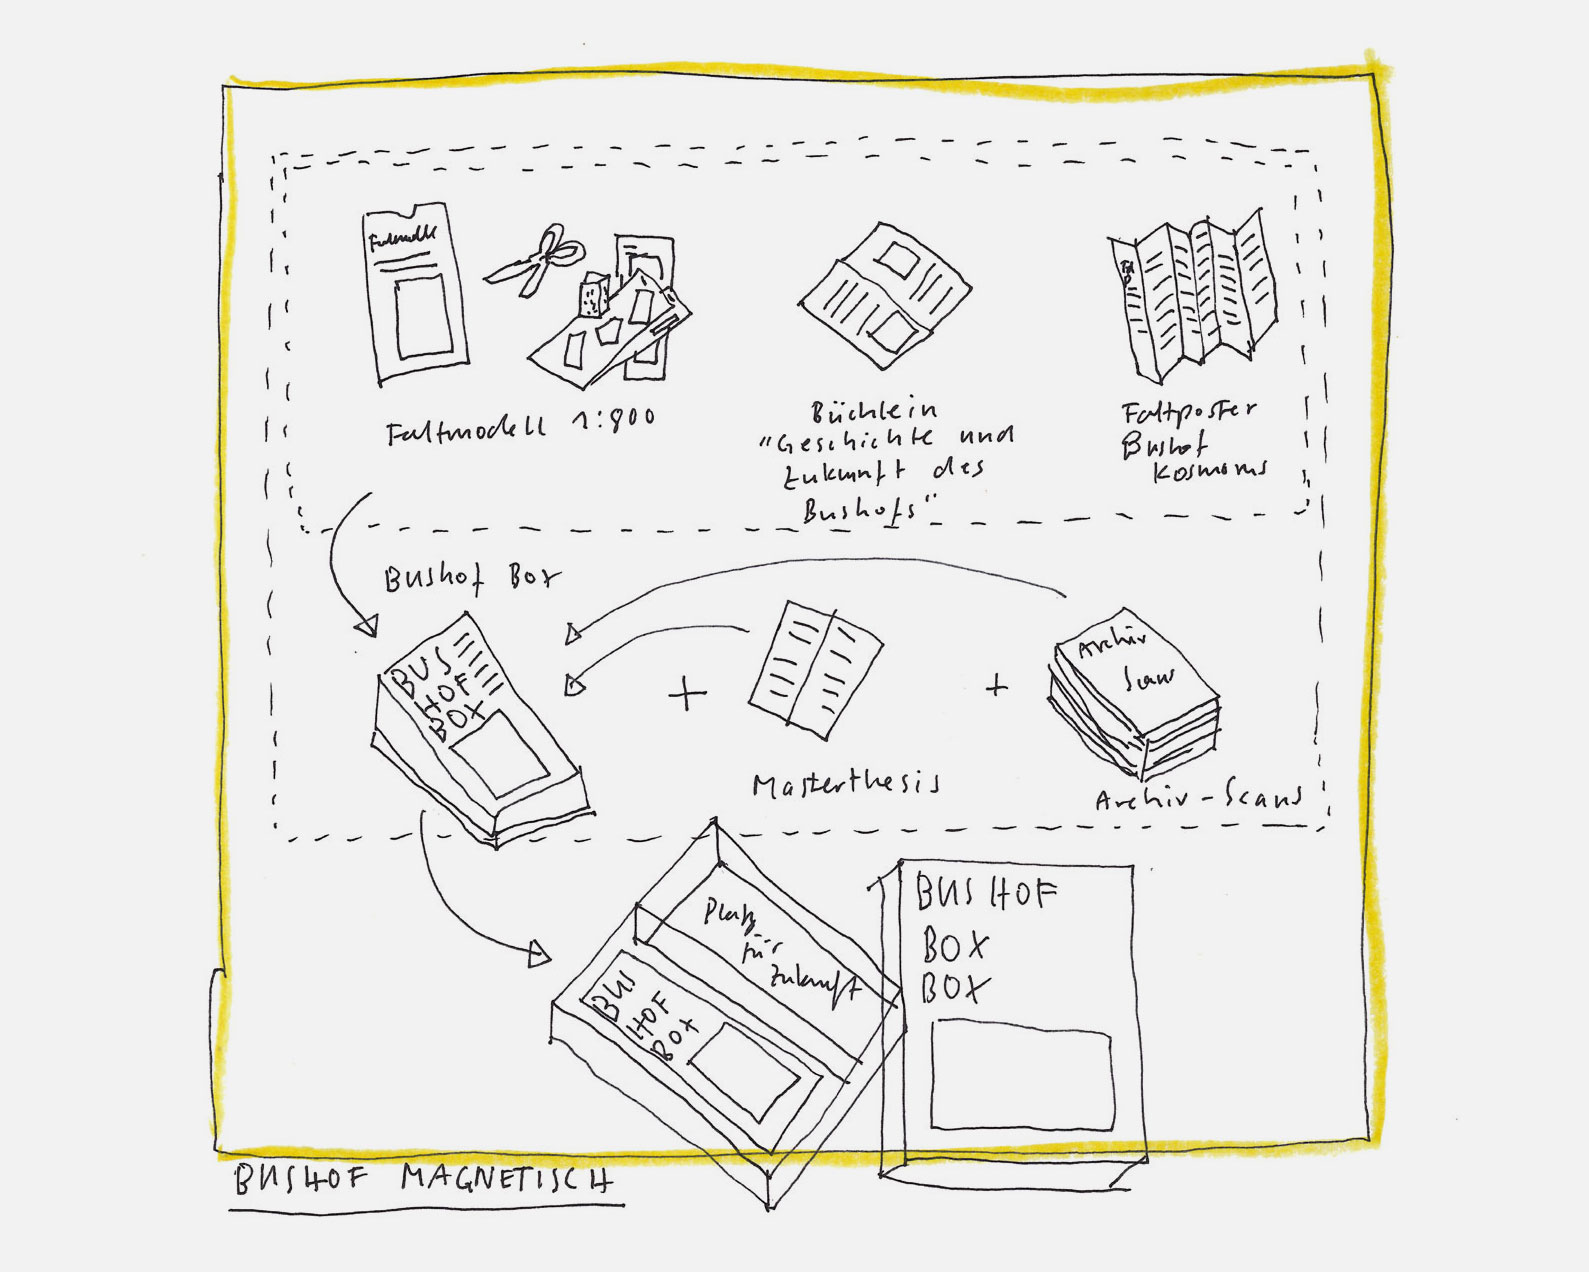 Faltmodell
Faltmodell 1:800
Büchlein
"Geschichte und
Zukunft des
Bushofs"
Faltposter
Bushof
Kosmoms
Bushof Box
BUS
HOF
BOX
Archiv
Scans
Masterthesis
Archiv-Scans
Platz
für
Zukunft
BUS
HOF
BOX
BUSHOF
BOX
BOX
BUSHOF MAGNETISCH